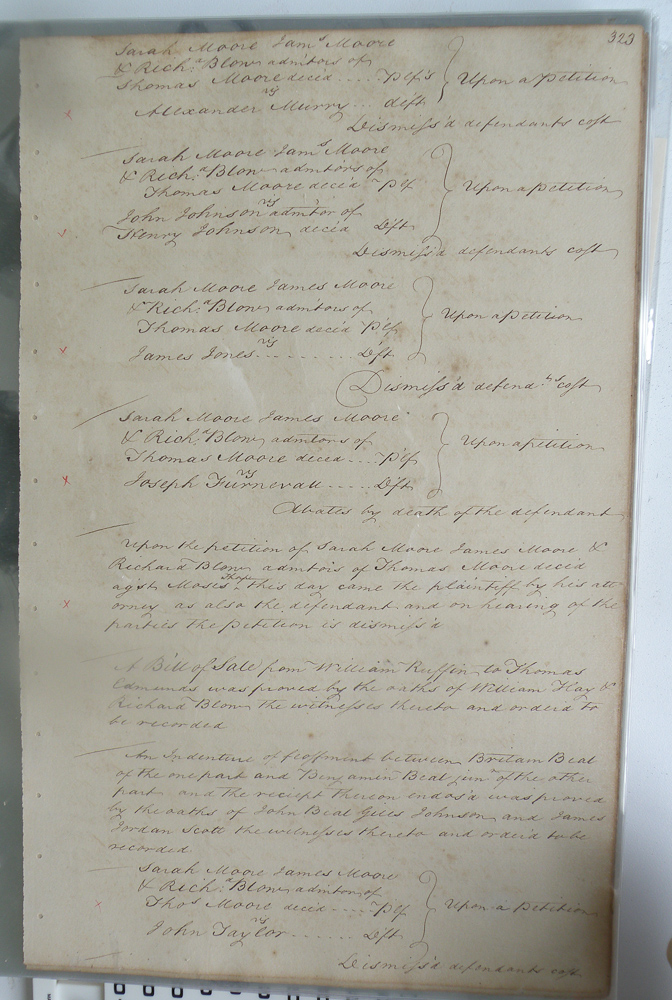 323
Sarah Moore Jams Moore
& Richd. Blow admitors of
Thomas Moore deced .... Plf's } Upon a Petition
vs
Alexander Murry ... dift
Dismiss'd defendants cost
Sarah Moore Jams Moore
& Richd. Blow admitors of
Thomas Moore decd Plf } Upon a Petition
vs
John Johnson admitor of Dft
Henry Johnson decd
Dismiss'd defendants cost
Sarah Moore James Moore
& Richd. Blow admitors of
Thomas Moore decd Plf } Upon a Petition
vs
James Jones ........ Dft
Dismiss'd defendts cost
Sarah Moore James Moore
& Richd. Blow admitors of
Thomas Moore deced .... Plf } Upon a Petition
vs
Joseph Furnevall ..... Dft
Abates by death of the defendant
Upon the petition of Sarah Moore James Moore &
Richard Blow admitors of Thomas Moore decd
agst Moses this day came the plaintiff by his att
orney as also the defendant and on hearing of the
parties the Petition is dismiss'd
A Bill of Sale from William Ruffin to Thomas
Edmunds was proved by the oaths of William Hay &
Richard Blow the witnesses thereto and order'd to
be recorded
An Indenture of feoffment between Britain Beal
of the one part and Benjamin Beal junr of the other
part and the reciept thereon endos'd was proved
by the oaths of John Beal Giles Johnson and James
Jordan Scott the witnesses thereto and order'd to be
recorded
Sarah Moore James Moore
& Richd. Blow admitors of
Thos Moore decd .... Plf } Upon a Petition
vs
John Taylor ....... Dft
Dismiss'd defendants cost